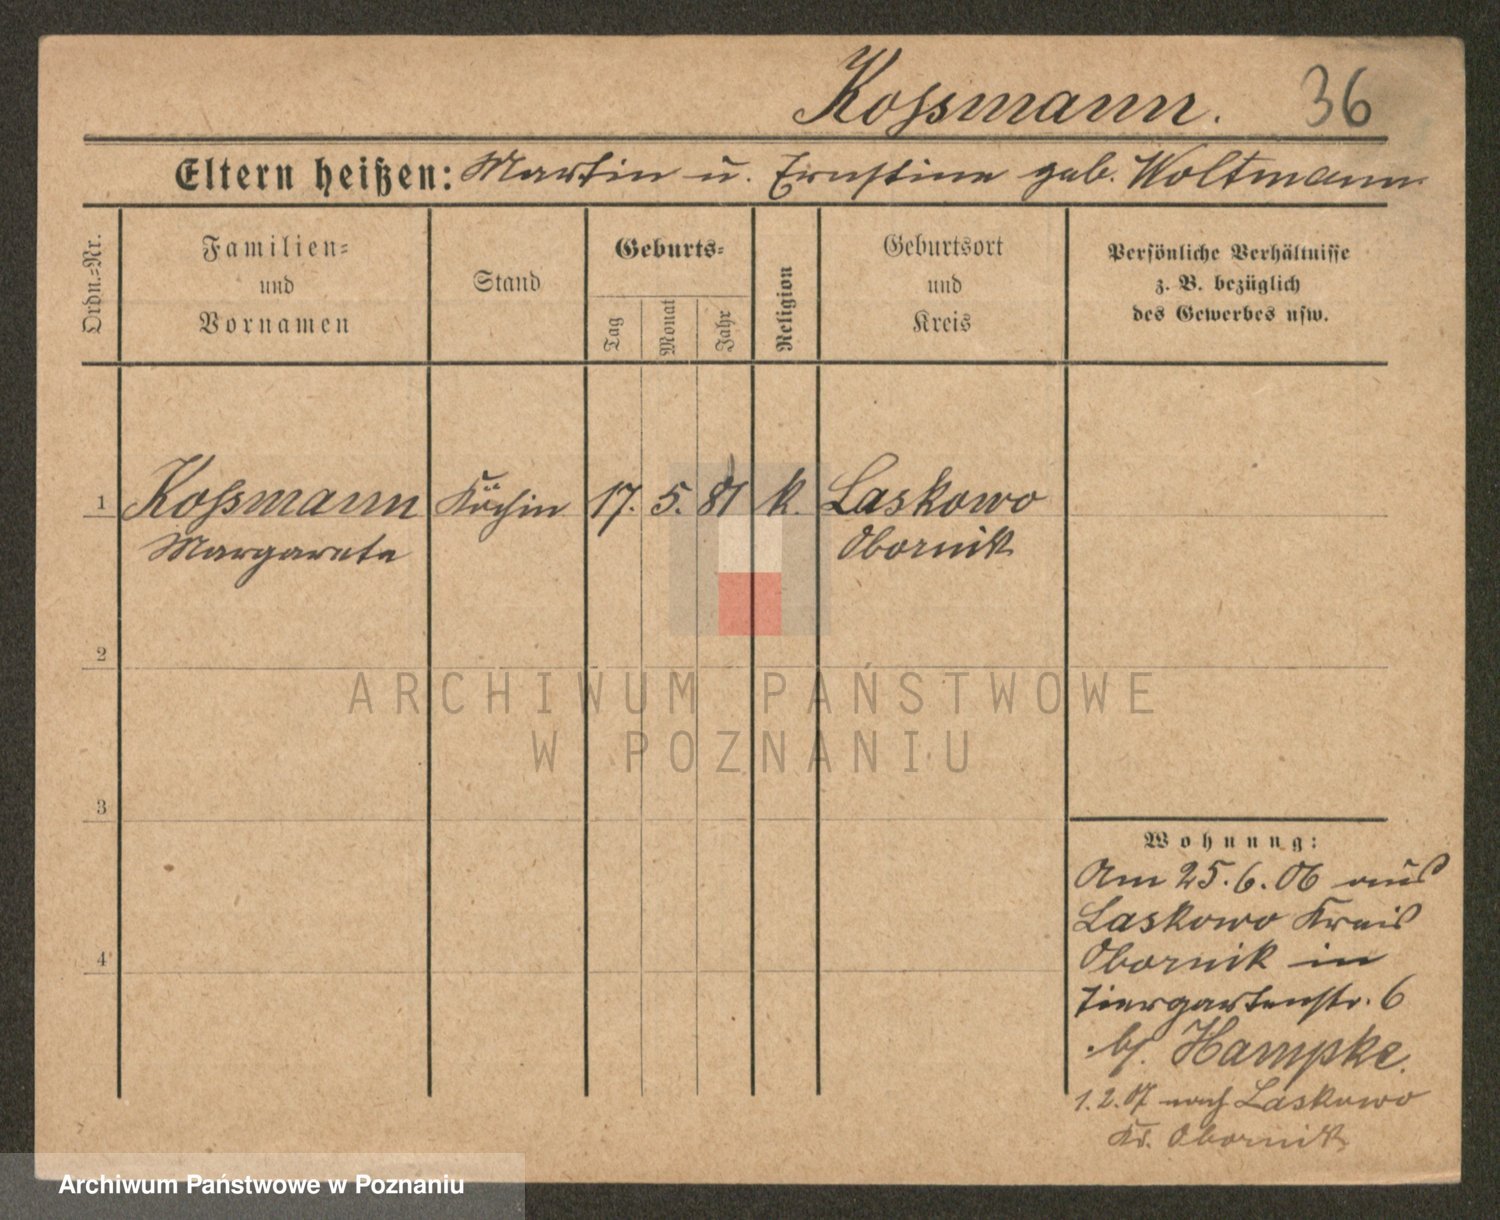 Kossmann. 36
Eltern heißen: Martin u. Ernstine geb. Woltmann
Ordn.-Nr.
Familien-
und
Vornamen
Stand
Geburts-
Tag
Monat
Jahr
Religion
Geburtsort
und
Kreis
Persönliche Verhältnisse
z. B. bezüglich
des Gewerbes usw.
1 Kossmann Köchin 17. 5. 81 k. Laskowo
Margarete Obornik
2
ARCHIWUM PAŃSTWOWE
W POZNANIU
3
Wohnung:
Am 25.6.06 aus
Laskowo Kreis
4 Obornik in
Tiergartenstr. 6
b/. Hampke.
1.2.07 nach Laskowo
Kr. Obornik
Archiwum Państwowe w Poznaniu